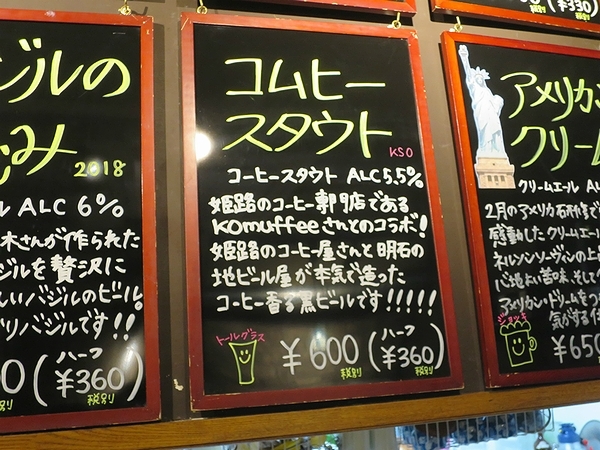 ジルの
2018
ALC 6%
木さんが作られた
ジルを贅沢に
しいバジルのビール。
リバジルです!!
(ハーフ
¥360)
税別
コムヒー
スタウト
KSO
コーヒースタウト ALC5.5%
姫路のコーヒー専門店である
Komuffeeさんとのコラボ!
姫路のコーヒー屋さんと明石の
地ビール屋が本気で造った
コーヒー香る黒ビールです!!!!!
トールグラス
¥600
税別
(ハーフ
¥360)
税別
(¥330)
税別
アメリカン
クリーム
クリームエール
2月のアメリカ
感動したクリームエー
ネルソンソーヴィンの
心地よい苦味、そして
アメリカン・ドリームを
気がする
ジョッキ
¥650